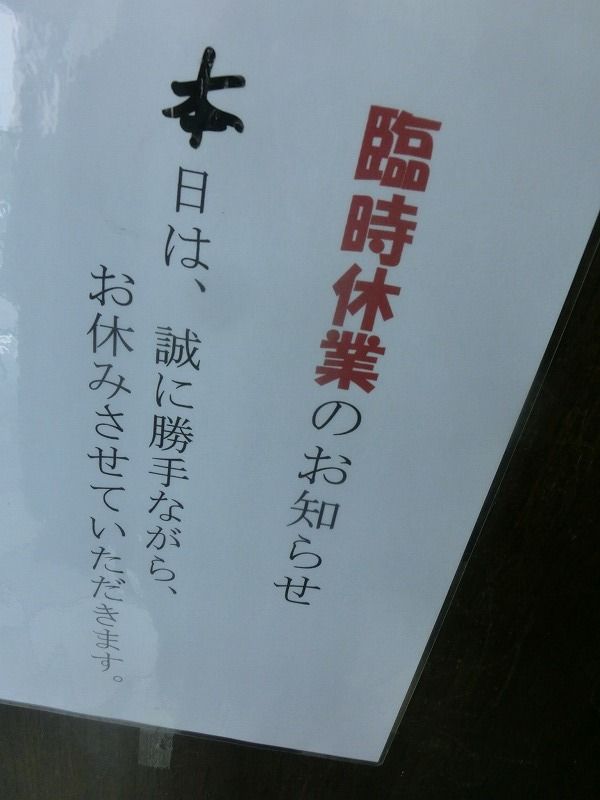 臨時休業のお知らせ
本日は、誠に勝手ながら、
お休みさせていただきます。